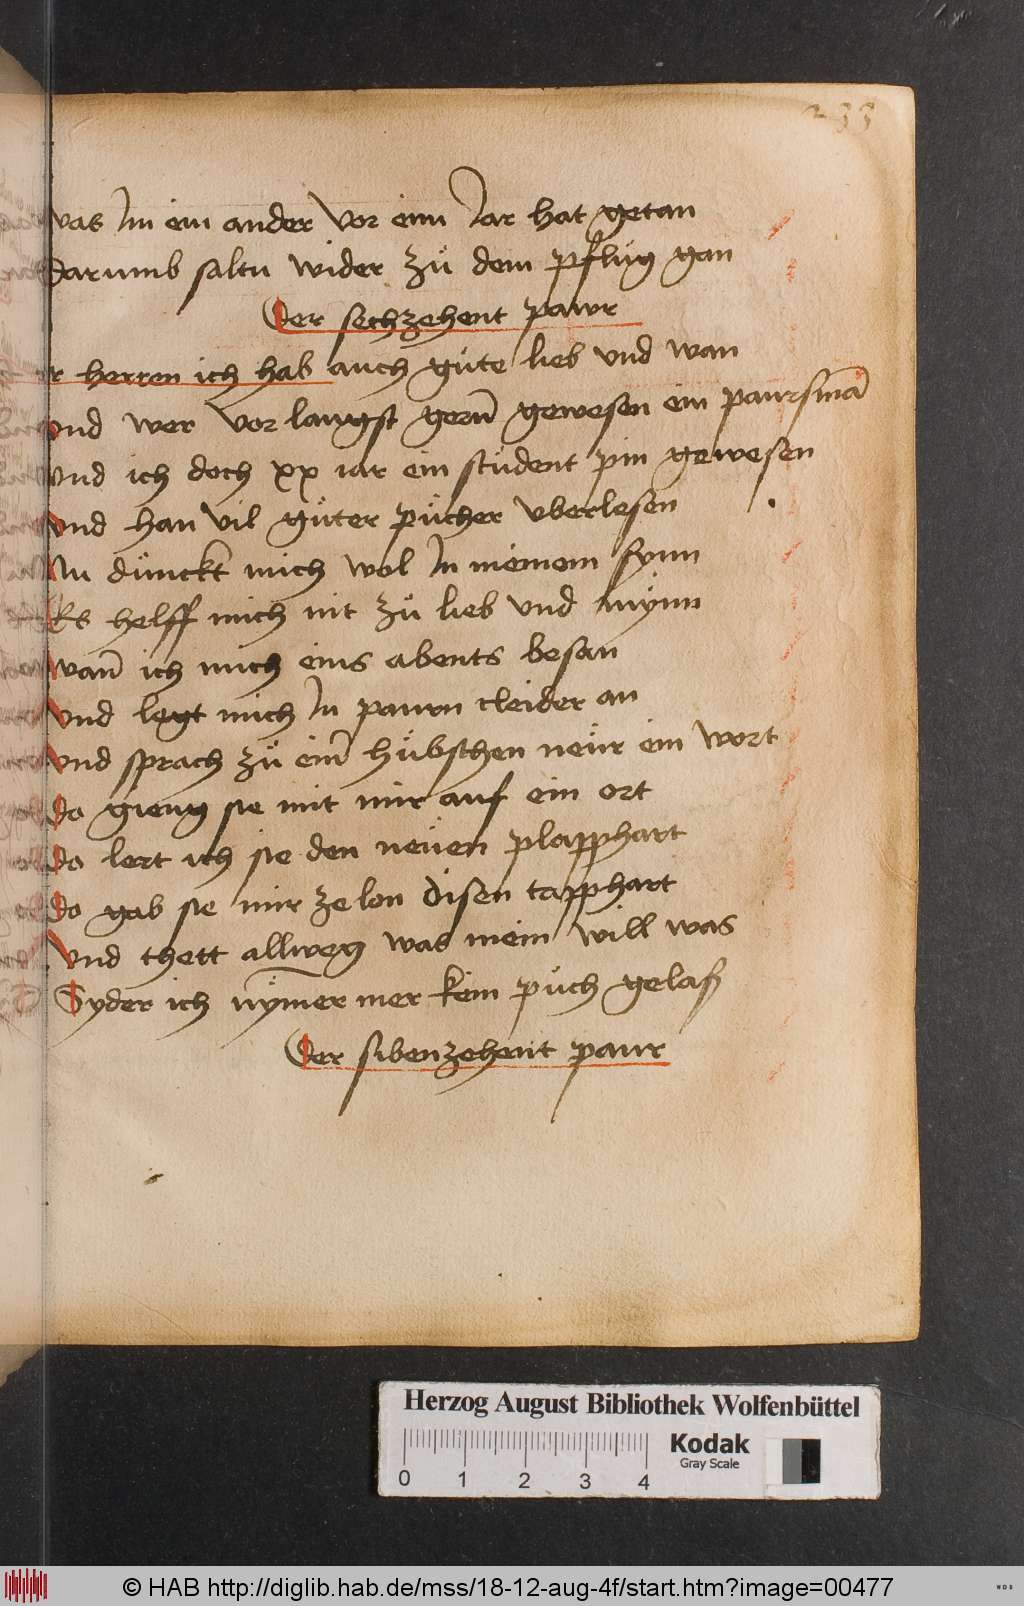 233
was Im ein ander vor eim Iar hat getan
darumb saltu wider zů dem pflůg gan
Der sechzehent pawr
r herren ich hab auch gůte lieb vnd wan
vnd wer vor langst gern̄ gewesen ein paursmā
vnd ich doch xx iar ein stůdent pin gewesen
vnd han vil gůter pücher vberlesen
Nu dünckt mich wol In meinem synn
Es helff mich nit zů lieb vnd mÿnn
wan̄ ich mich eins abents besan
vnd legt mich In paurn cleider an
vnd sprach zů eim̄ hübschen neür ein wort
do gieng sie mit mir auf ein ort
do lert ich sie den neüen plapphart
do gab sie mir ze lon disen tapphart
vnd thett allweg was mein will was
Syder ich nÿmer mer kein půch gelaß
Der sibenzehent paur
Herzog August Bibliothek Wolfenbüttel
Kodak
Gray Scale
0 1 2 3 4
© HAB http://diglib.hab.de/mss/18-12-aug-4f/start.htm?image=00477